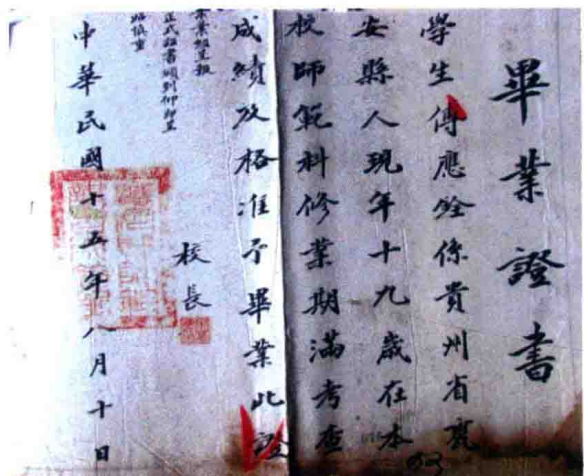 畢業證書
學生傅應銓係貴州省甕
安縣人現年十九歲在本
校師範科修業期滿考查
成績及格准予畢業此證
校長
中華民國十五年八月十日